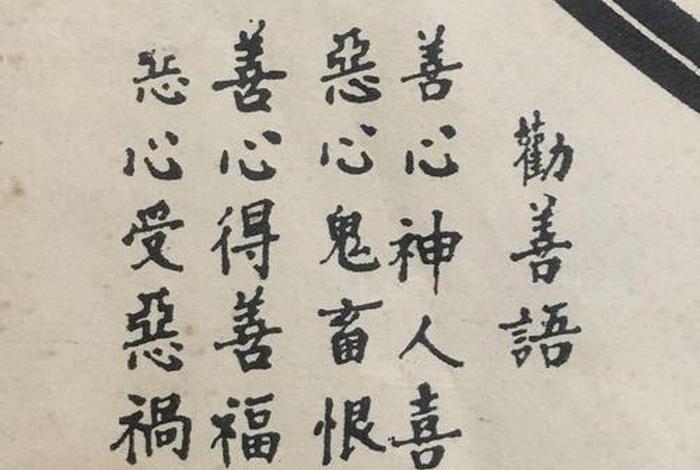 勸善語
善心神人喜
惡心鬼畜恨
善心得善福
惡心受惡禍